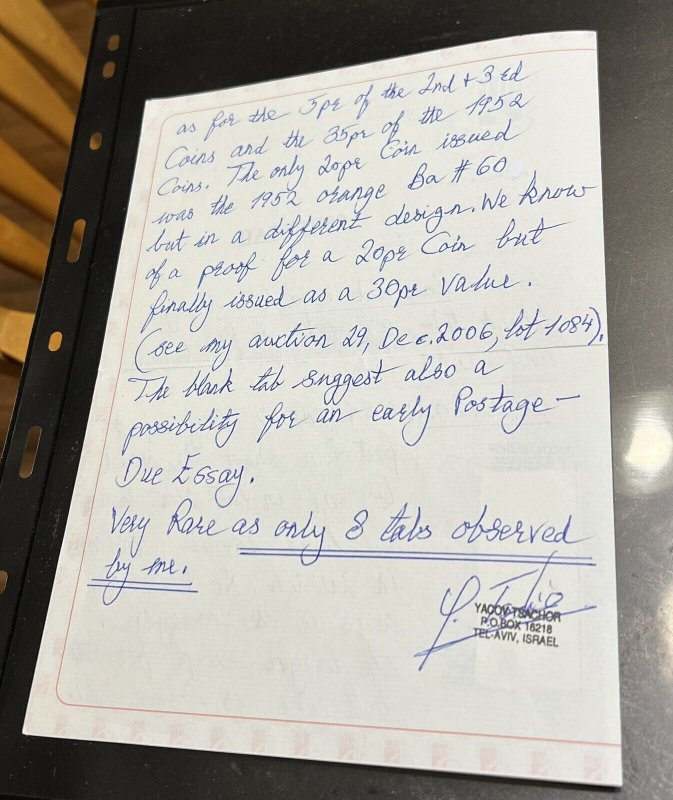 as for the 5pr of the 2nd + 3rd
Coins and the 35pr of the 1952
Coins. The only 20pr Coin issued
was the 1952 orange Ba # 60
but in a different design. We know
of a proof for a 20pr Coin but
finally issued as a 30pr value.
(see my auction 29, Dec. 2006, lot 1084).
The blank tab suggest also a
possibility for an early Postage-
Due Essay.
Very Rare as only 8 tabs observed
by me.
YACOV TSACHOR
P.O.BOX 16218
TEL-AVIV, ISRAEL